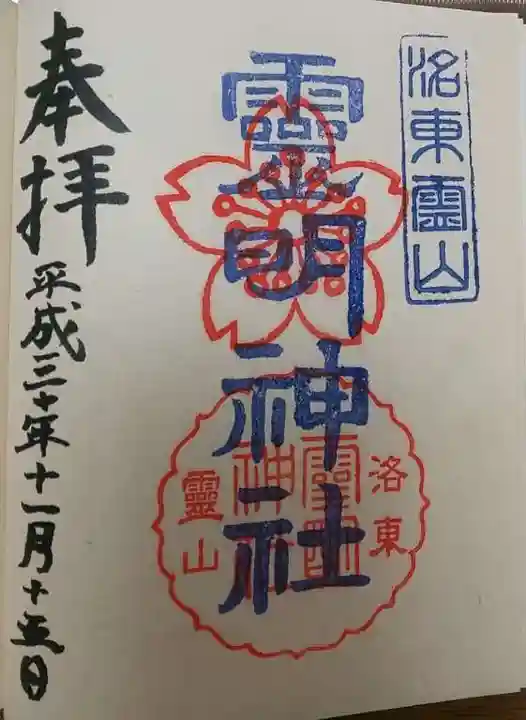 洛東靈山
靈明神社
洛東
靈明
神社
靈山
奉拝
平成三十年十一月十五日